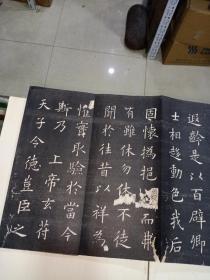 遐齡是以百辟卿
士相趍動色我后
固懷撝挹而弗
有雖休勿休不徒
聞於往昔以祥為
懼實取驗於當今
斯乃 上帝玄符
天子令德豈臣之